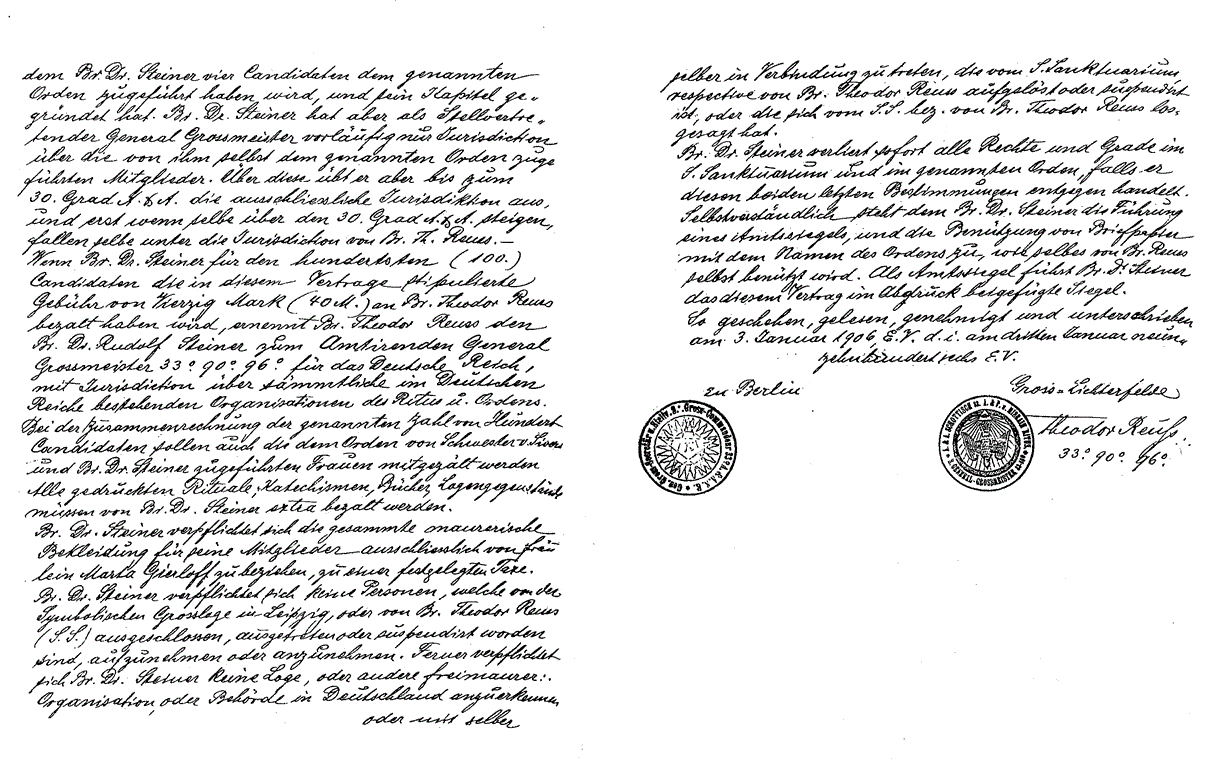 dem Br. Dr. Steiner vier Candidaten dem genannten
Orden zugeführt haben wird, und sein Kapitel ge„
gründet hat. Br. Dr. Steiner hat aber als Stellvertre„
tender General Grossmeister vorläufig nur Jurisdiction
über die von ihm selbst dem genannten Orden zuge
führten Mitglieder. Über diese übt er aber bis zum
30. Grad A. & A. die ausschliessliche Jurisdiktion aus,
und erst wenn selbe über den 30. Grad A. & A. steigen,
fallen selbe unter die Jurisdiction von Br. Th. Reuss. —
Wenn Br. Dr. Steiner für den hundertsten (100.)
Candidaten die in diesem Vertrage stipulierte
Gebühr von Vierzig Mark (40 M.) an Br. Theodor Reuss
bezalt haben wird, ernennt Br. Theodor Reuss den
Br. Dr. Rudolf Steiner zum Amtirenden General
Grossmeister 33° 90° 96° für das Deutsche Reich,
mit Jurisdiction über sämmtliche im Deutschen
Reiche bestehenden Organisationen des Ritus u. Ordens.
Bei der Zusammenrechnung der genannten Zahl von Hundert
Candidaten sollen auch die dem Orden von Schwester v. Sivers
und Br. Dr. Steiner zugeführten Frauen mitgezält werden
Alle gedruckten Rituale, Katechismen, Bücher, Logengegenstände
müssen von Br. Dr. Steiner extra bezalt werden.
Br. Dr. Steiner verpflichtet sich die gesammte maurerische
Bekleidung für seine Mitglieder ausschliesslich von Fräu
lein Marta Gierloff zu beziehen, zu einer festgelegten Taxe.
Br. Dr. Steiner verpflichtet sich keine Personen, welche von der
Symbolischen Grossloge in Leipzig, oder von Br. Theodor Reuss
(S.S.) ausgeschlossen, ausgetreten oder suspendirt worden
sind, aufzunehmen oder anzunehmen. Ferner verpflichtet
sich Br. Dr. Steiner keine Loge, oder andere freimaurer:.
Organisation, oder Behörde in Deutschland anzuerkennen
oder mit selber
selber in Verbindung zu treten, die vom S. Sanktuarium,
respective von Br. Theodor Reuss aufgelöst oder suspendirt
ist, oder die sich vom S.S. bez. von Br. Theodor Reuss los-
gesagt hat.
Br. Dr. Steiner verliert sofort alle Rechte und Grade im
S. Sanktuarium und im genannten Orden, falls er
diesen beiden letzten Bestimmungen entgegen handelt.
Selbstverständlich steht dem Br. Dr. Steiner die Führung
eines Amtssiegels, und die Benützung von Briefpapier
mit dem Namen des Ordens zu, wie selbes von Br. Reuss
selbst benützt wird. Als Amtssiegel führt Br. Dr. Steiner
das diesem Vertrag im Abdruck beigefügte Siegel.
So geschehen, gelesen, genehmigt und unterschrieben
am 3. Januar 1906, E.V. d. i. am dritten Januar neun„
zehnhundert sechs E.V.
zu Berlin
Gross-Lichterfelde
Theodor Reuss:.
33° 90° 96°